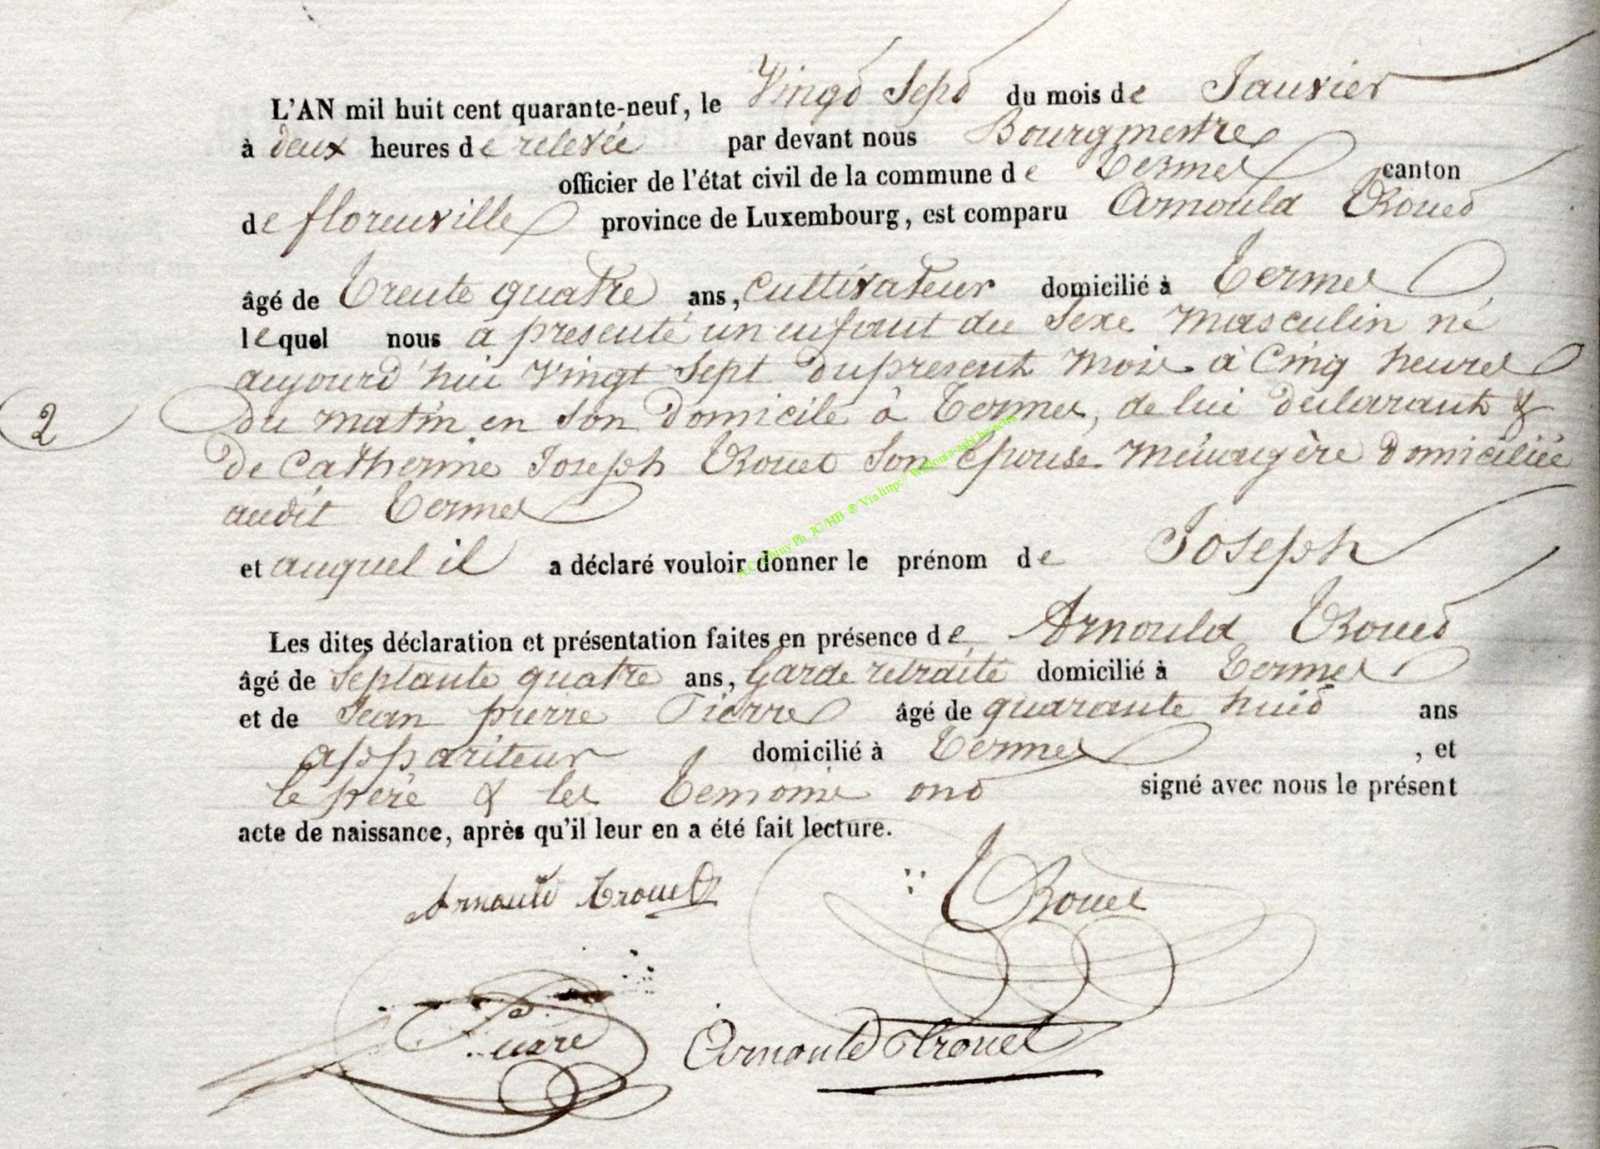 L'AN mil huit cent quarante-neuf, le Vingt Sept du mois de Janvier
à deux heures de relevée par devant nous Bourgmestre
officier de l'état civil de la commune de Termes canton
de florenville province de Luxembourg, est comparu Arnould Trouet
âgé de Trente quatre ans, cultivateur domicilié à Termes
lequel nous a presenté un enfant du Sexe Masculin né
aujourd'hui Vingt Sept du present mois à Cinq heures
2 Du matin en Son Domicile à Termes, de lui déclarant &
De Catherine Joseph Trouet Son Epouse Ménagère Domiciliée
audit Termes
et auquel il a déclaré vouloir donner le prénom de Joseph
Les dites déclaration et présentation faites en présence de Arnould Trouet
âgé de Septante quatre ans, Garde retraité domicilié à Termes
et de Jean pierre Pierre âgé de quarante huit ans
appariteur domicilié à Termes , et
le père & les Temoins ont signé avec nous le présent
acte de naissance, après qu'il leur en a été fait lecture.
Arnould Trouet Trouet
Pierre Arnould Trouet